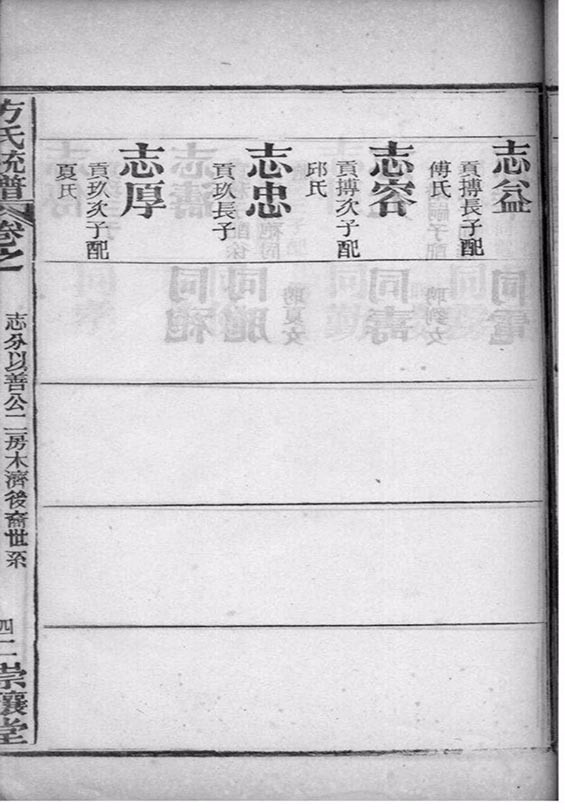 志益
貢摶長子配
傅氏
志容
貢摶次子配
邱氏
志忠
貢玖長子
志厚
貢玖次子配
夏氏
方氏統譜
卷之一
志分以善公二房木濟後裔世系
四二
崇讓堂